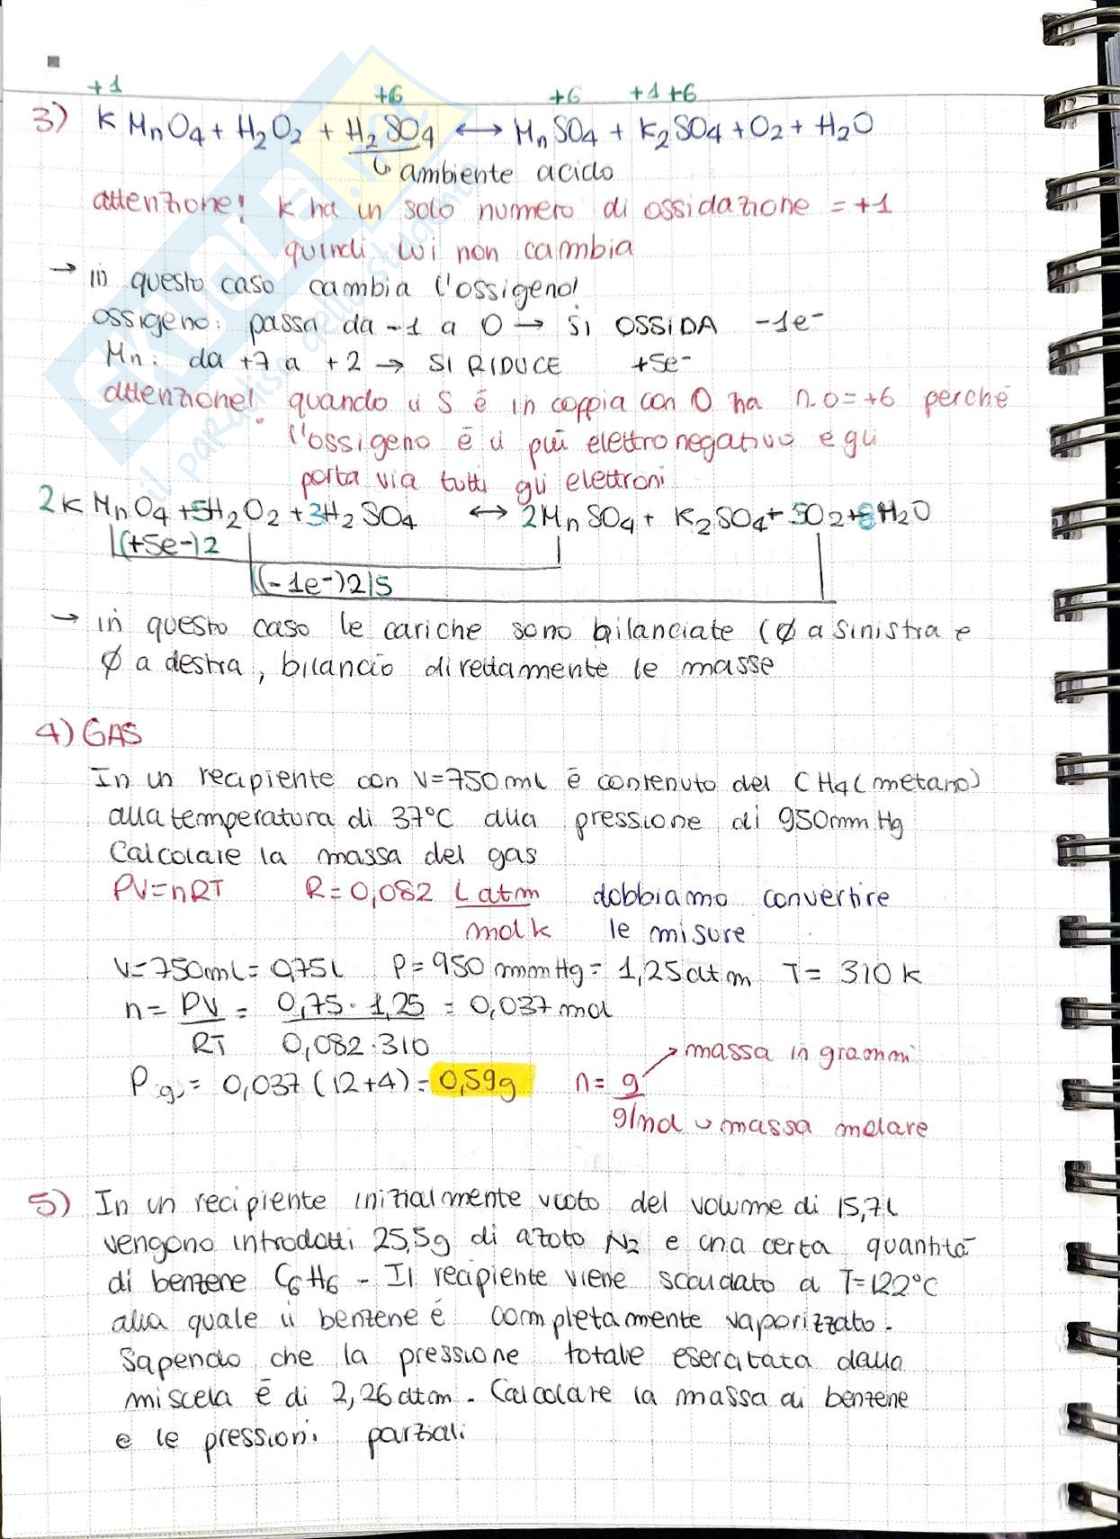 +1 +6 +6 +1 +6
3) KMnO4 + H2O2 + H2SO4 ⟷ MnSO4 + K2SO4 + O2 + H2O
↳ ambiente acido
attenzione! K ha un solo numero di ossidazione = +1
quindi lui non cambia
→ in questo caso cambia l'ossigeno!
ossigeno: passa da -1 a 0 → si OSSIDA -1e-
Mn: da +7 a +2 → SI RIDUCE +5e-
attenzione! quando il S è in coppia con O ha n.o = +6 perché
l'ossigeno è il più elettronegativo e gli
porta via tutti gli elettroni
2KMnO4 + 5H2O2 + 3H2SO4 ⟷ 2MnSO4 + K2SO4 + 5O2 + 8H2O
(+5e-)2
(-1e-)2|5
→ in questo caso le cariche sono bilanciate (∅ a sinistra e
∅ a destra, bilancio direttamente le masse
4) GAS
In un recipiente con V=750ml è contenuto del CH4 (metano)
alla temperatura di 37°C alla pressione di 950mmHg
Calcolare la massa del gas
PV=nRT R=0,082 L atm dobbiamo convertire
mol k le misure
V=750ml=0,75L P=950 mmHg=1,25atm T= 310 k
n= PV = 0,75·1,25 = 0,037 mol
RT 0,082·310
→ massa in grammi
P(g)= 0,037 (12+4)= 0,59g n= g
g/mol → massa molare
5) In un recipiente inizialmente vuoto del volume di 15,7L
vengono introdotti 25,5g di azoto N2 e una certa quantità
di benzene C6H6 - Il recipiente viene scaudato a T=122°C
alla quale il benzene è completamente vaporizzato.
Sapendo che la pressione totale esercitata dalla
miscela è di 2,26 atm. Calcolare la massa di benzene
e le pressioni parziali
SKUOLA.NET
il paradiso dello studente